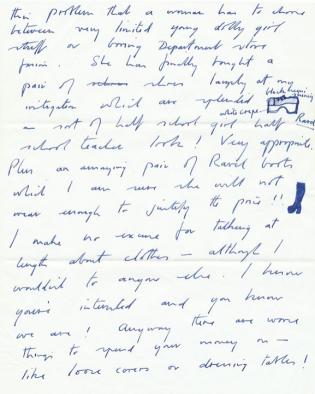 their problem that a woman has to choose
between very limited young dolly girl
stuff or boring Department store
She has finally bought a
pair of shoes largely at my
instigation which are splendid
black
white crepe
a sort of half school girl half Ravel
school teacher look! Very appropriate.
Plus an annoying pair of Ravel boots
which I am sure she will not
wear enough to justify the price!!
I make no excuse for talking at
length about clothes – although I
wouldn't to anyone else. I know
you're interested and you know
we are! Anyway there are worse
things to spend your money on –
like loose covers or dressing tables!